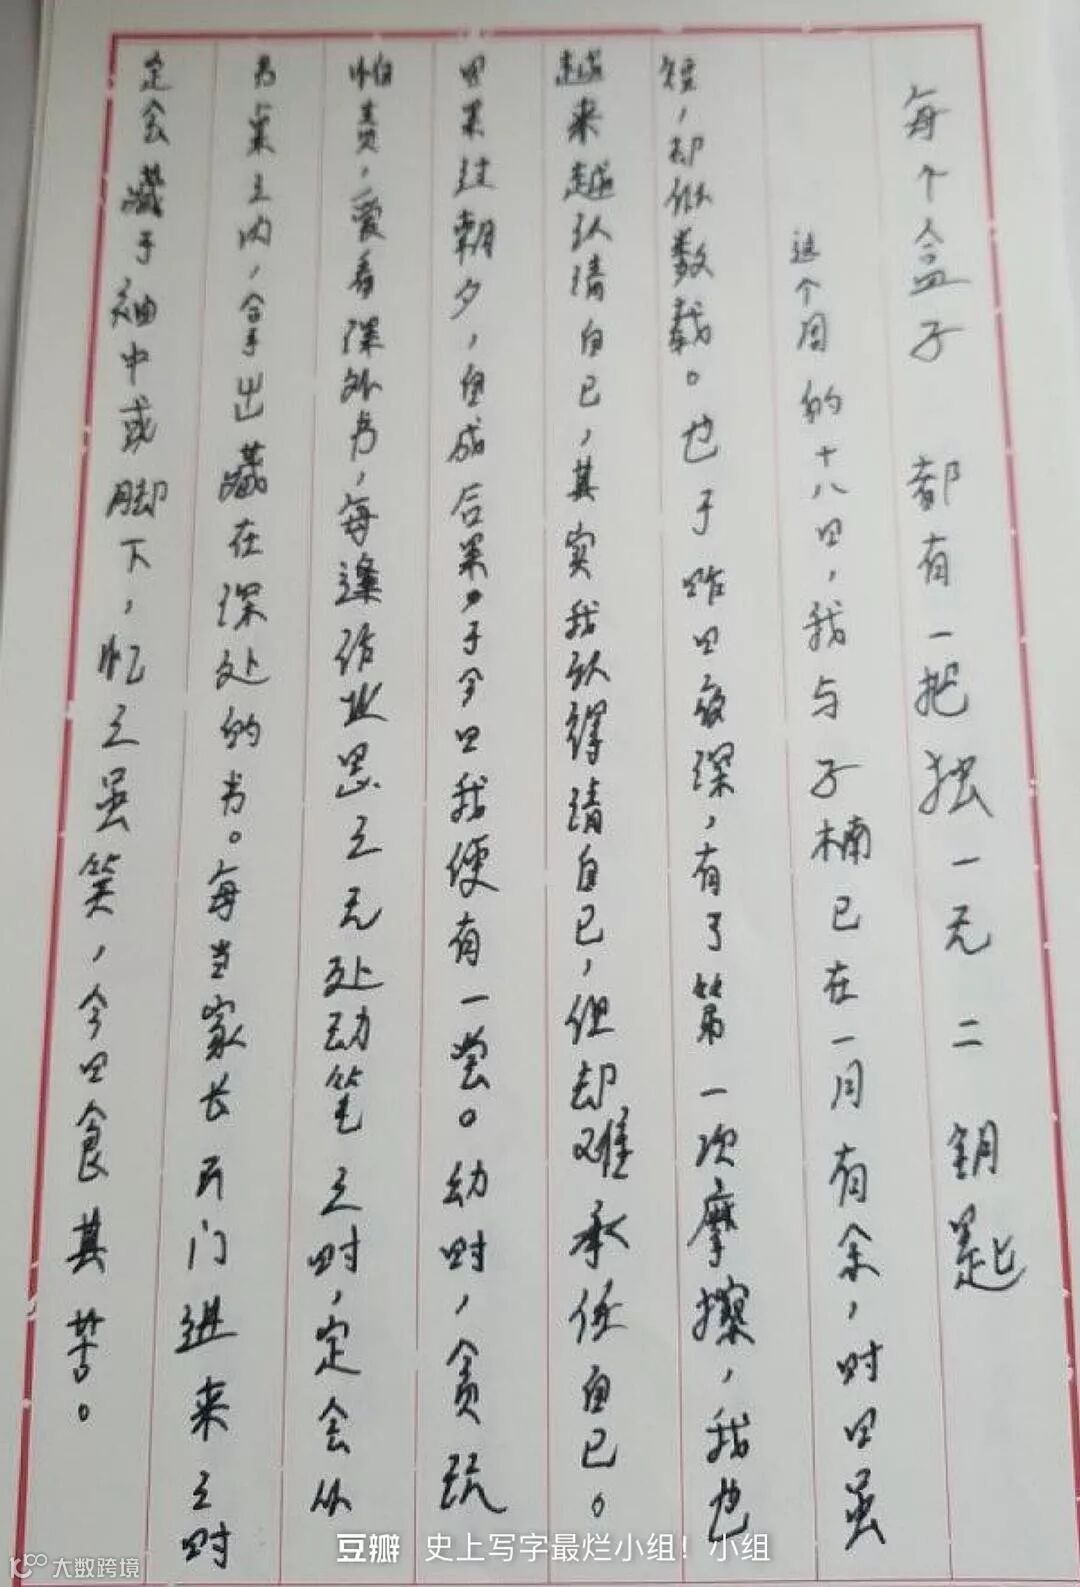 每个盒子 都有一把独一无二钥匙
这个周的十八日，我与子楠已在一月有余，时日虽
短，却似数载。也于昨日夜深，有了第一次摩擦，我也
越来越认清自己，其实我认得清自己，但却难承任自己。
因果过朝夕，自成后果。于今日我便有一尝。幼时，贪玩
怕责，爱看课外书，每逢作业思之无处动笔之时，定会从
书桌之内，拿出藏在深处的书。每当家长开门进来之时
定会藏于袖中或脚下，忆之虽笑，今日食其苦。
豆瓣 史上写字最烂小组！小组
大数跨境